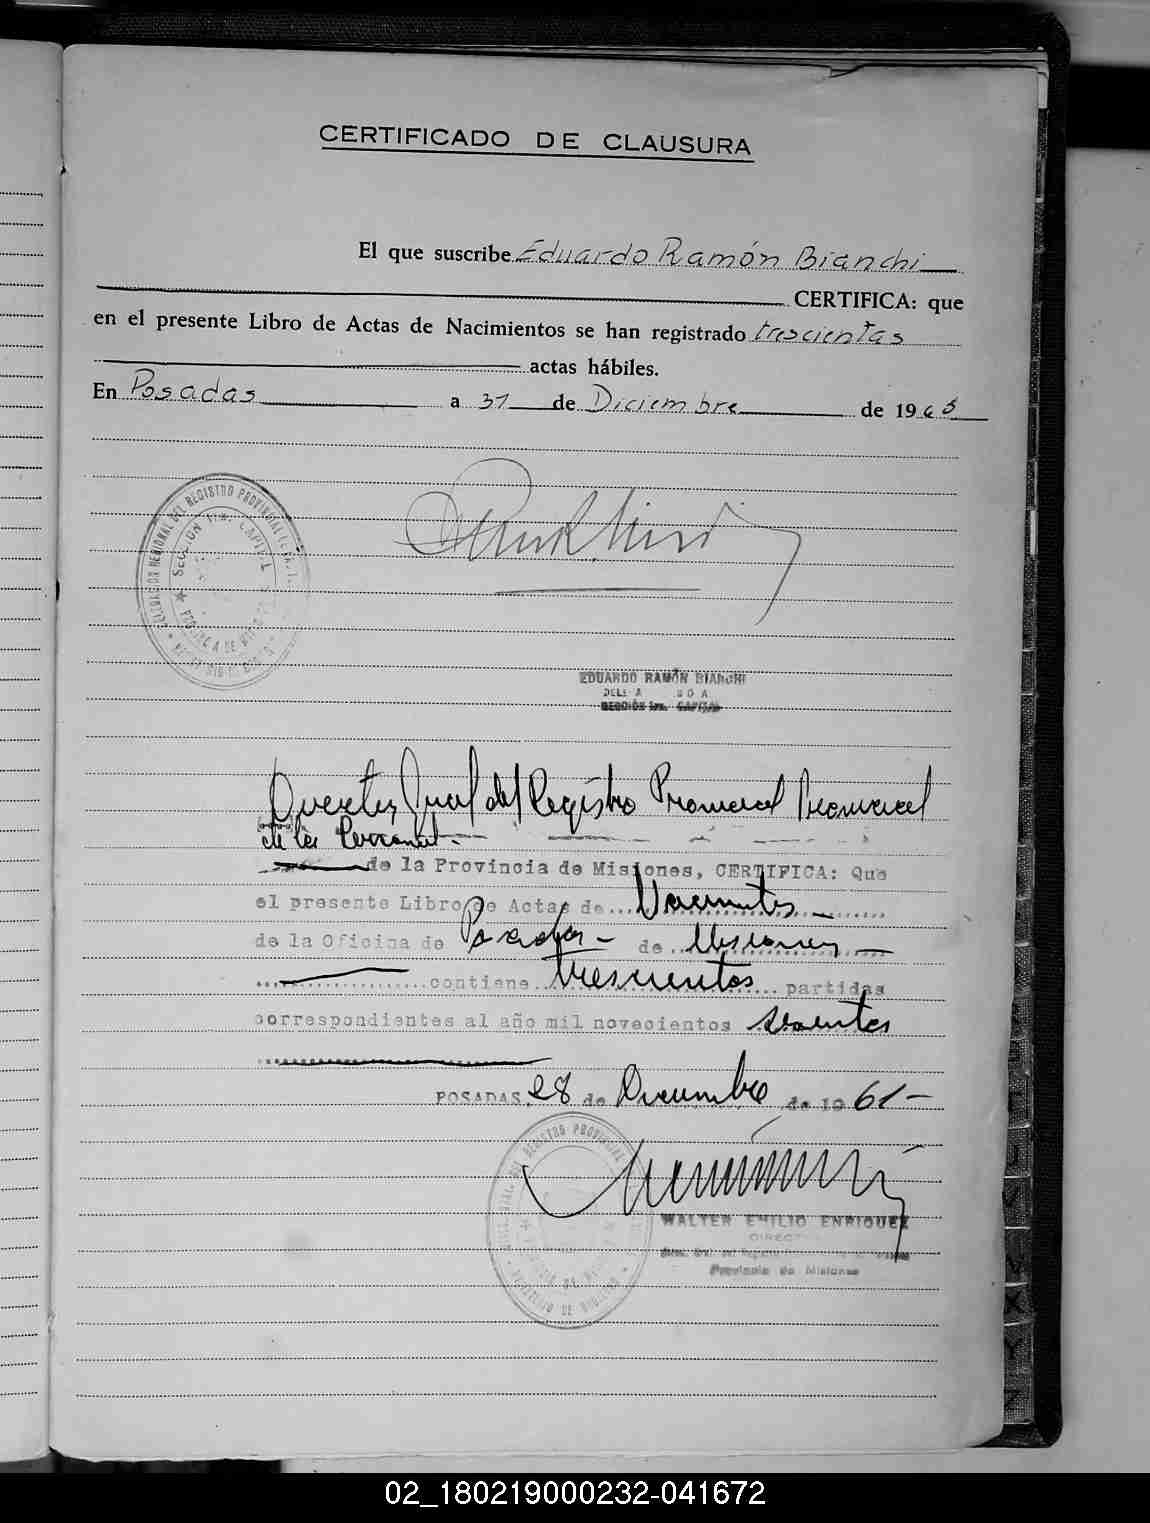 CERTIFICADO DE CLAUSURA
El que suscribe Eduardo Ramón Bianchi
CERTIFICA: que
en el presente Libro de Actas de Nacimientos se han registrado trescientas
actas hábiles.
En Posadas a 31 de Diciembre de 196
EDUARDO RAMÓN BIANCHI
SECCIÓN 1ra. CAPITAL
del Registro Provincial
de las
de la Provincia de Misiones, CERTIFICA: Que
el presente Libro de Actas de Nacimientos
de la Oficina de Posadas de Misiones
contiene trescientos partidas
correspondientes al año mil novecientos sesenta
POSADAS, 28 de Diciembre de 1961
WALTER EMILIO ENRIQUEZ
DIRECTOR
Provincia de Misiones
02_180219000232-041672